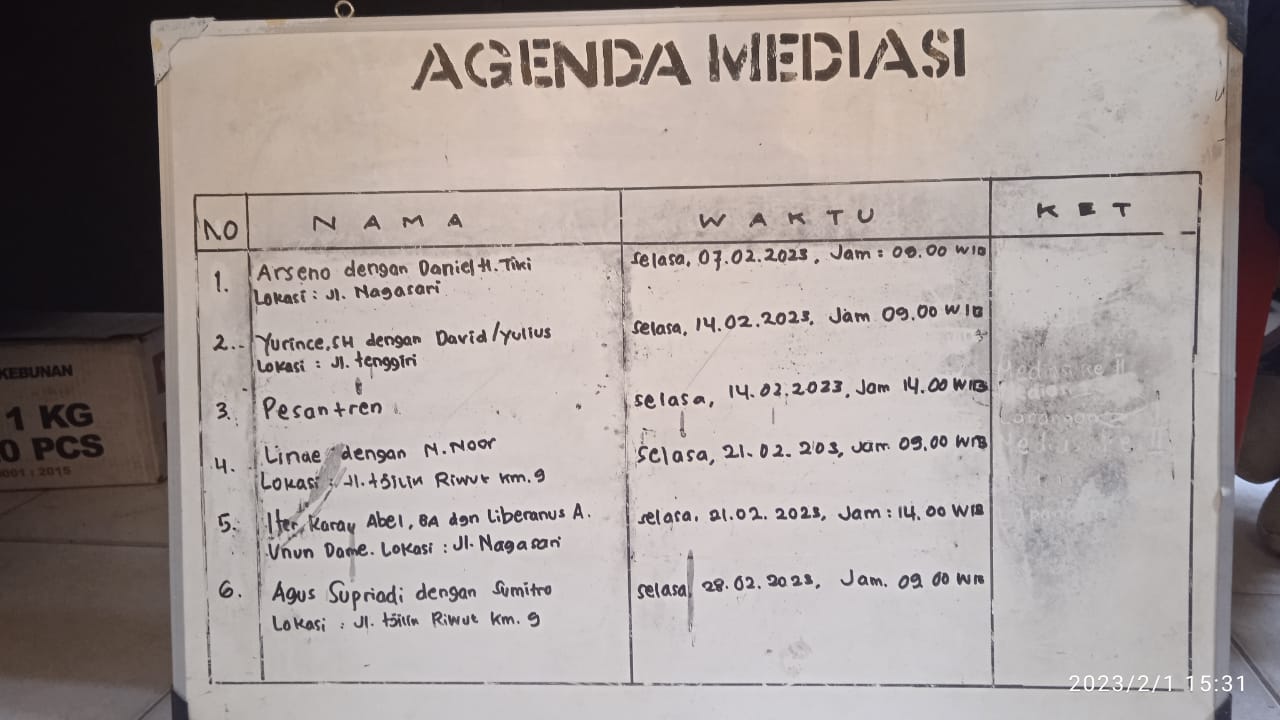 AGENDA MEDIASI
NO NAMA WAKTU KET
1. Arseno dengan Daniel H. Tiki selasa, 07.02.2023, Jam : 09.00 WIB
Lokasi : Jl. Nagasari
2. Yurince, SH dengan David/Yulius selasa, 14.02.2023, Jam 09.00 WIB
Lokasi : Jl. tenggiri
3. Pesantren selasa, 14.02.2023, Jam 14.00 WIB
4. Linae dengan M. Noor selasa, 21.02.203, Jam 09.00 WIB
Lokasi : Jl. Riwut km. 9
5. Iter, Karay Abel, BA dgn Liberanus A. selasa, 21.02.2023, Jam : 14.00 WIB
Unun Dame. Lokasi : Jl. Nagasari
6. Agus Supriadi dengan Sumitro selasa 28.02.2023, Jam. 09 00 WIB
Lokasi : Jl. Riwut km. 9
KEBUNAN
1 KG
0 PCS
001 : 2015
2023/2/1 15:31